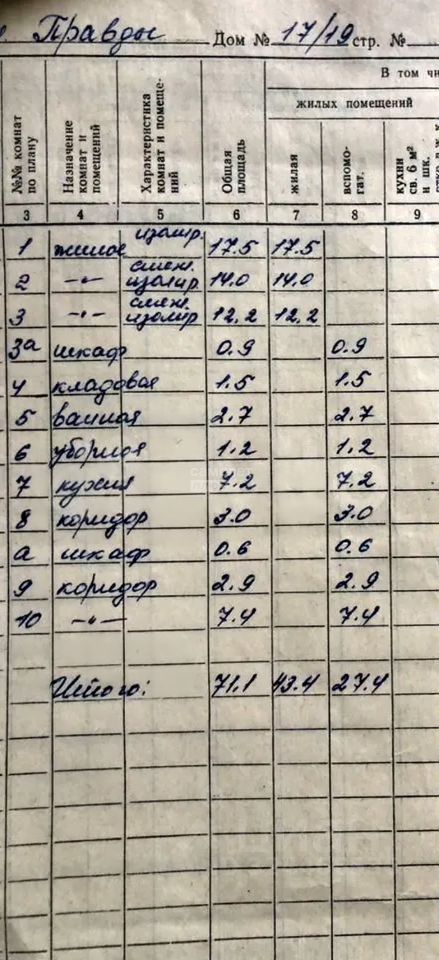 Правды Дом № 17/19 стр. №
В том чи
жилых помещений
№№ комнат по плану
Назначение комнат и помещений
Характеристика комнат и помеще-ний
Общая площадь
жилая
вспомо-гат.
кухни св. 6 м² и шк.
3 4 5 6 7 8 9
1 жилое изолир. 17.5 17.5
2 —〃— смеж. изолир 14.0 14.0
3 —〃— смеж. изолир 12,2 12,2
3а шкаф 0.9 0.9
4 кладовая 1.5 1.5
5 ванная 2.7 2.7
6 уборная 1.2 1.2
7 кухня 7.2 7.2
8 коридор 3.0 3.0
а шкаф 0.6 0.6
9 коридор 2.9 2.9
10 —〃— 7.4 7.4
Итого: 71.1 43.4 27.4